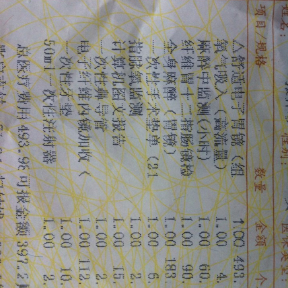 项目/规格 数量 金额
△舒适电子胃镜(组 1.00 498.
氧气吸入(高流量) 1.00 4.
麻醉中监测(小时) 1.00 60.
纤维胃十二指肠镜检 1.00 90.
全身麻醉(胃镜) 1.00 183
一次性手术垫单(B1 1.00 6.
指脉氧监测 1.00 2.
计算机图文报告 1.00 15.
一次性鼻导管 1.00 2.
电子纤维内镜加收( 1.00 112.
一次性 1.00 10.
50ml一次性注射器 1.00 2.
总医疗费用 493.9 可报金额 397.2